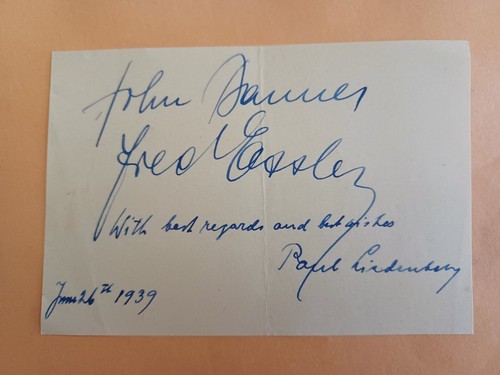 John Banner
Fred Essler
With best regards and best wishes
Paul Lindenberg
June 26th 1939